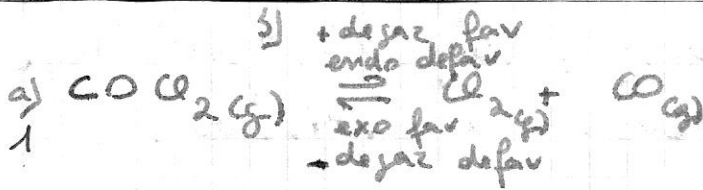 b) + de gaz fav
endo defav
a) COCl2(g) ⇌ Cl2(g) + CO(g)
1
exo fav
- de gaz defav